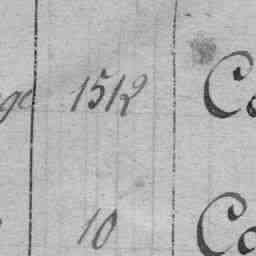 ge 1512 Co
10 Co